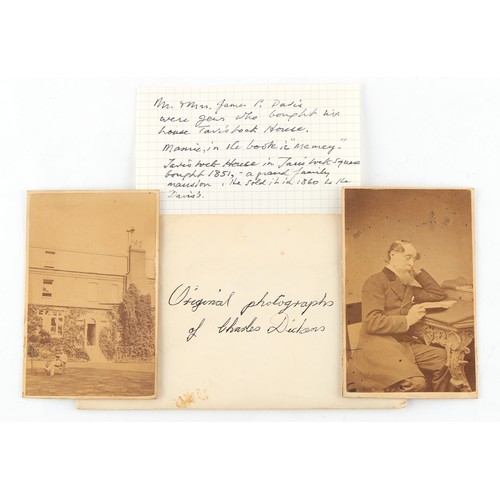 Mr. & Mrs. James P. Davis,
were jews who bought his
house Tavistock House.
Mamie, in the book is "Mamey".
Tavistock House in Tavistock Square
bought 1851, - a grand family
mansion, He sold it in 1860 to the
Davis's.
Original photographs
of Charles Dickens